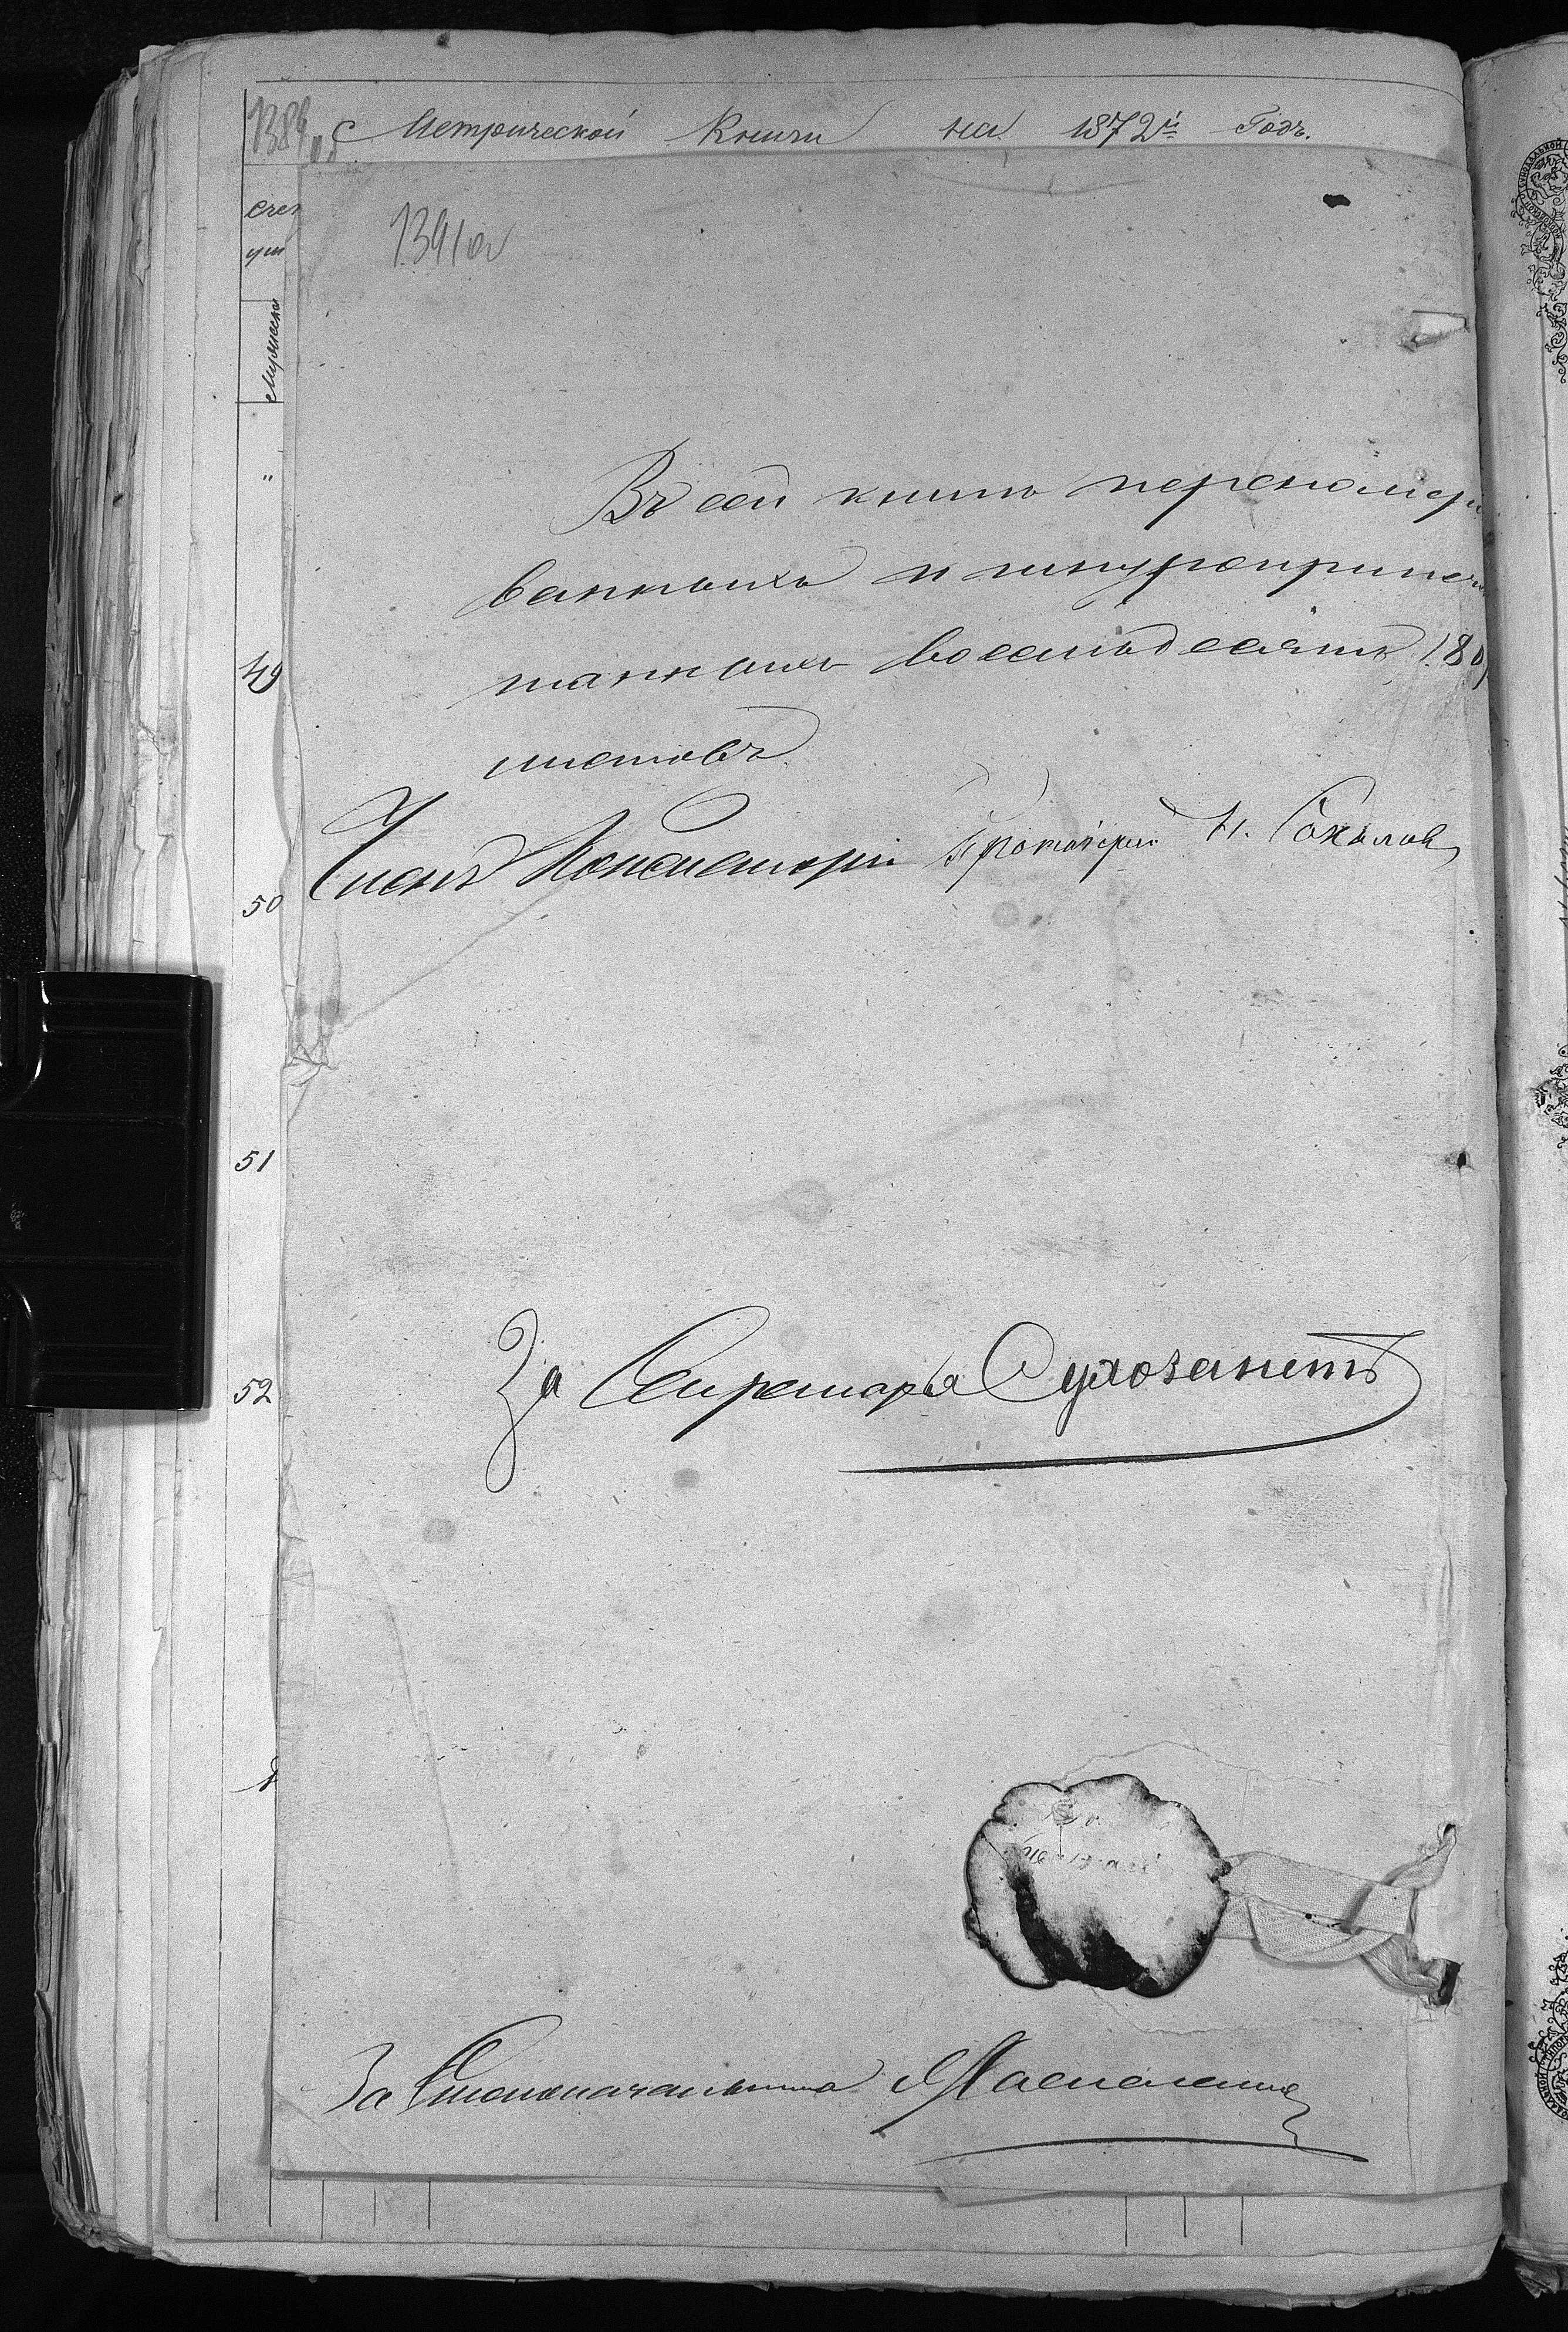 1389
Метрической Книги на 1872й Годъ.
1391об
Въ сей книгѣ перенумеро
ванныхъ и шнуроприпеча
танныхъ восемьдесятъ (80)
листовъ
49
Членъ Консисторіи Протоіерей Н. Соколовъ
50
51
За Секретаря Сухозанетъ
52
За Столоначальника